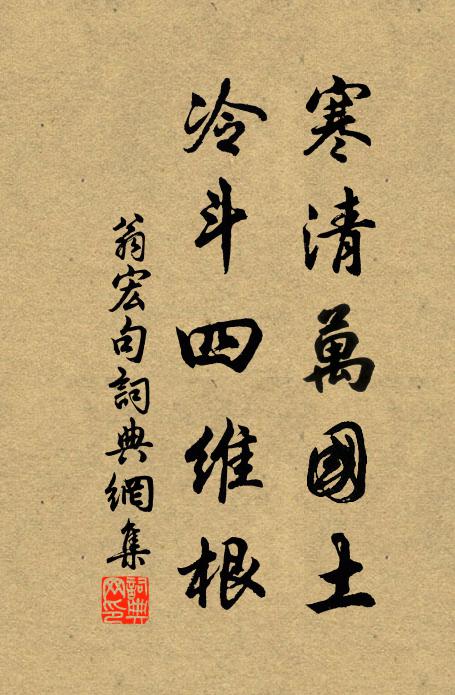 寒清萬國土
冷斗四維根
翁宏句詞典網集
詞典網印